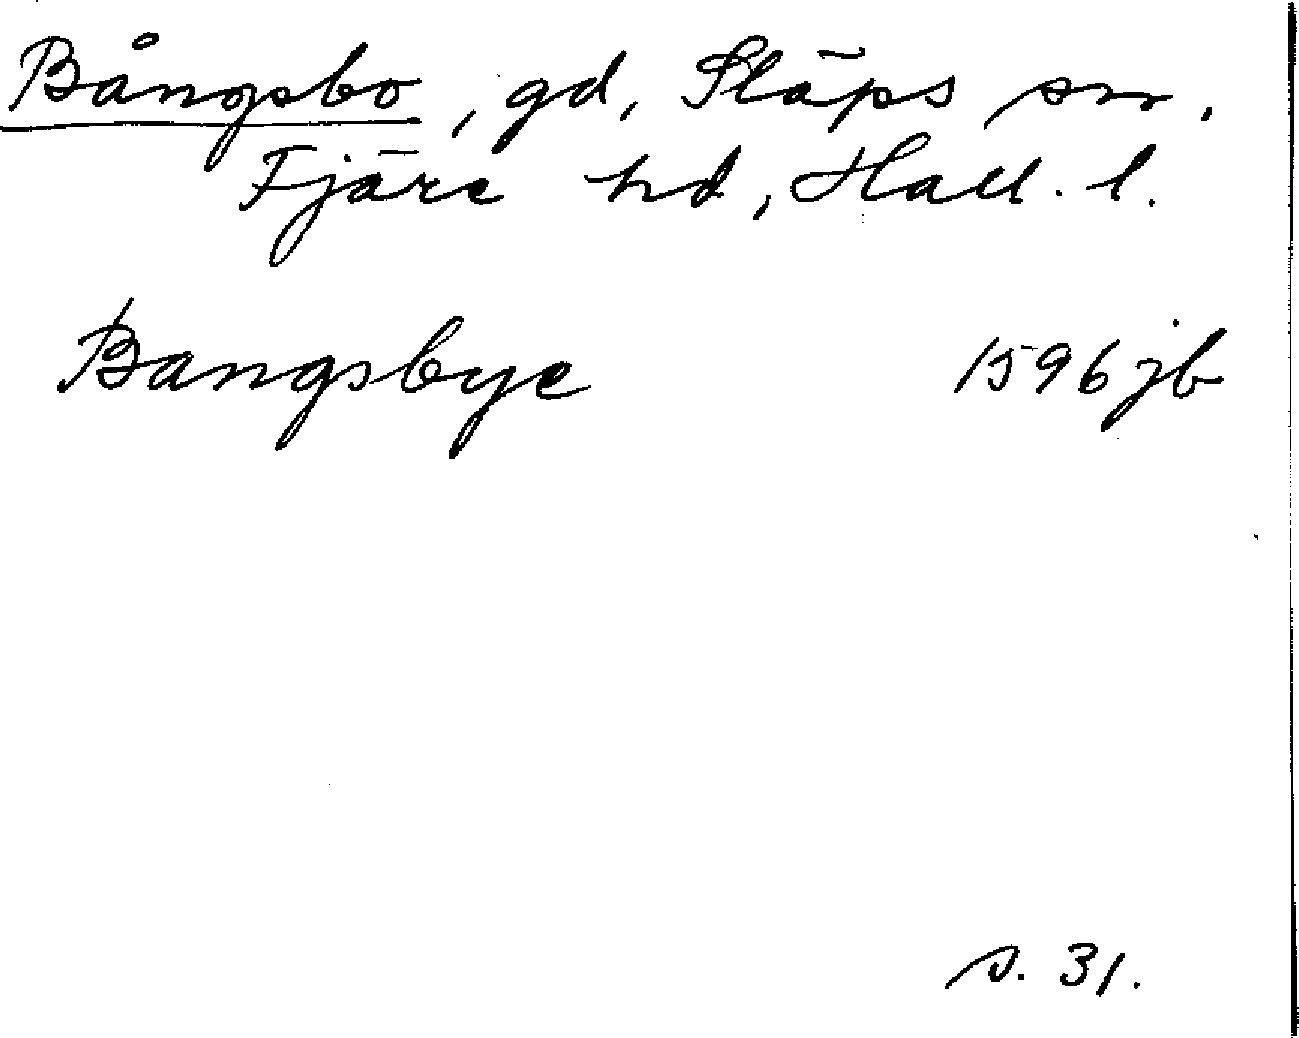 Bångsbo, gd, Släps sn.
Fjäre hd, Hall. l.
Bangsbye 1596 jb
s. 31.